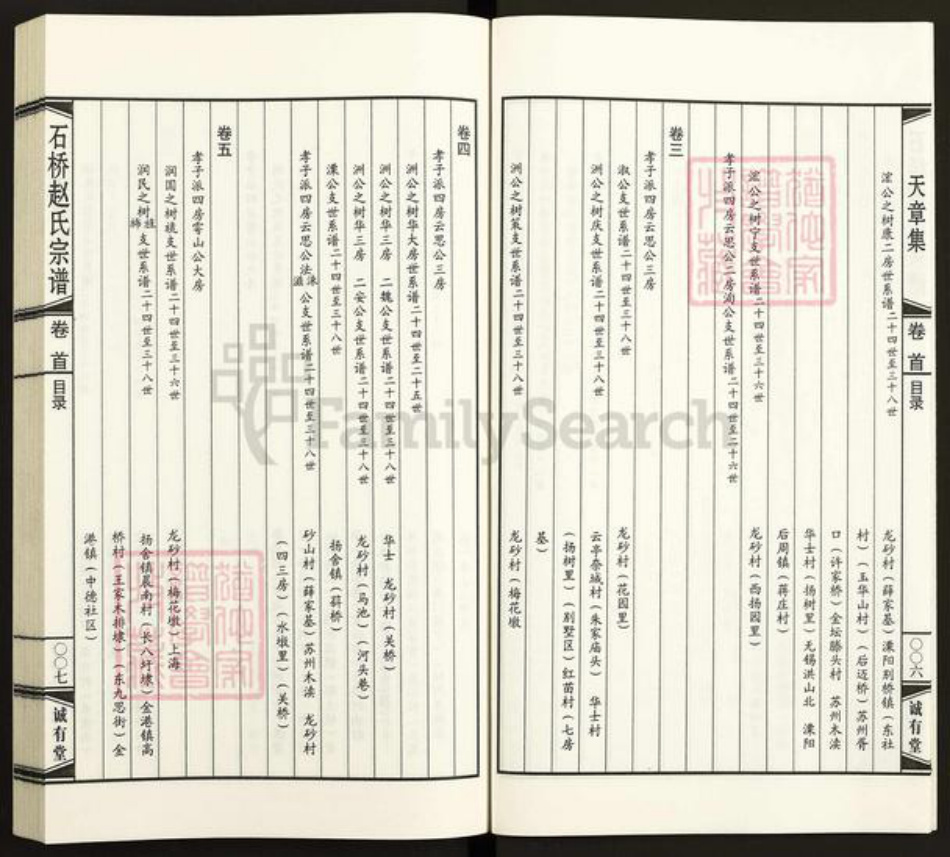 天章集
卷首
目录
〇〇六
诚有堂
浤公之树康二房世系谱二十四世至三十八世
龙砂村（薛家基）溧阳别桥镇（东社
村）（玉华山村）（后迈桥）苏州胥
口（许家桥）金坛滕头村 苏州木渎
华士村（扬树里）无锡洪山北 溧阳
后周镇（蒋庄村）
浤公之树宁支世系谱二十四世至三十六世
龙砂村（西扬园里）
孝子派四房云思公二房洵公支世系谱二十四世至二十六世
卷三
孝子派四房云思公三房
淑公支世系谱二十四世至三十八世
龙砂村（花园里）
洲公之树庆支世系谱二十四世至三十八世
云亭奈城村（朱家庙头） 华士村
（扬树里）（别墅区）红苗村（七房
基）
洲公之树策支世系谱二十四世至三十八世
龙砂村（梅花墩
卷四
孝子派四房云思公三房
洲公之树华大房世系谱二十四世至二十五世
洲公之树华三房 二魏公支世系谱二十四世至三十八世
华士 龙砂村（关桥）
洲公之树华三房 二安公支世系谱二十四世至三十八世
龙砂村（马池）（河头巷）
溧公支世系谱二十四世至三十八世
扬舍镇（蒋桥）
孝子派四房云思公法洙滋公支世系谱二十四世至三十八世
砂山村（薛家基）苏州木渎 龙砂村
（四三房）（水墩里）（关桥）
卷五
孝子派四房雩山公大房
润国之树桃支世系谱二十四世至三十六世
龙砂村（梅花墩）上海
润民之树支世系谱二十四世至三十八世
扬舍镇晨南村（长八圩埭）金港镇高
桥村（王家木排埭）（东九思街）金
港镇（中德社区）
石桥赵氏宗谱
卷首
目录
〇〇七
诚有堂
FamilySearch